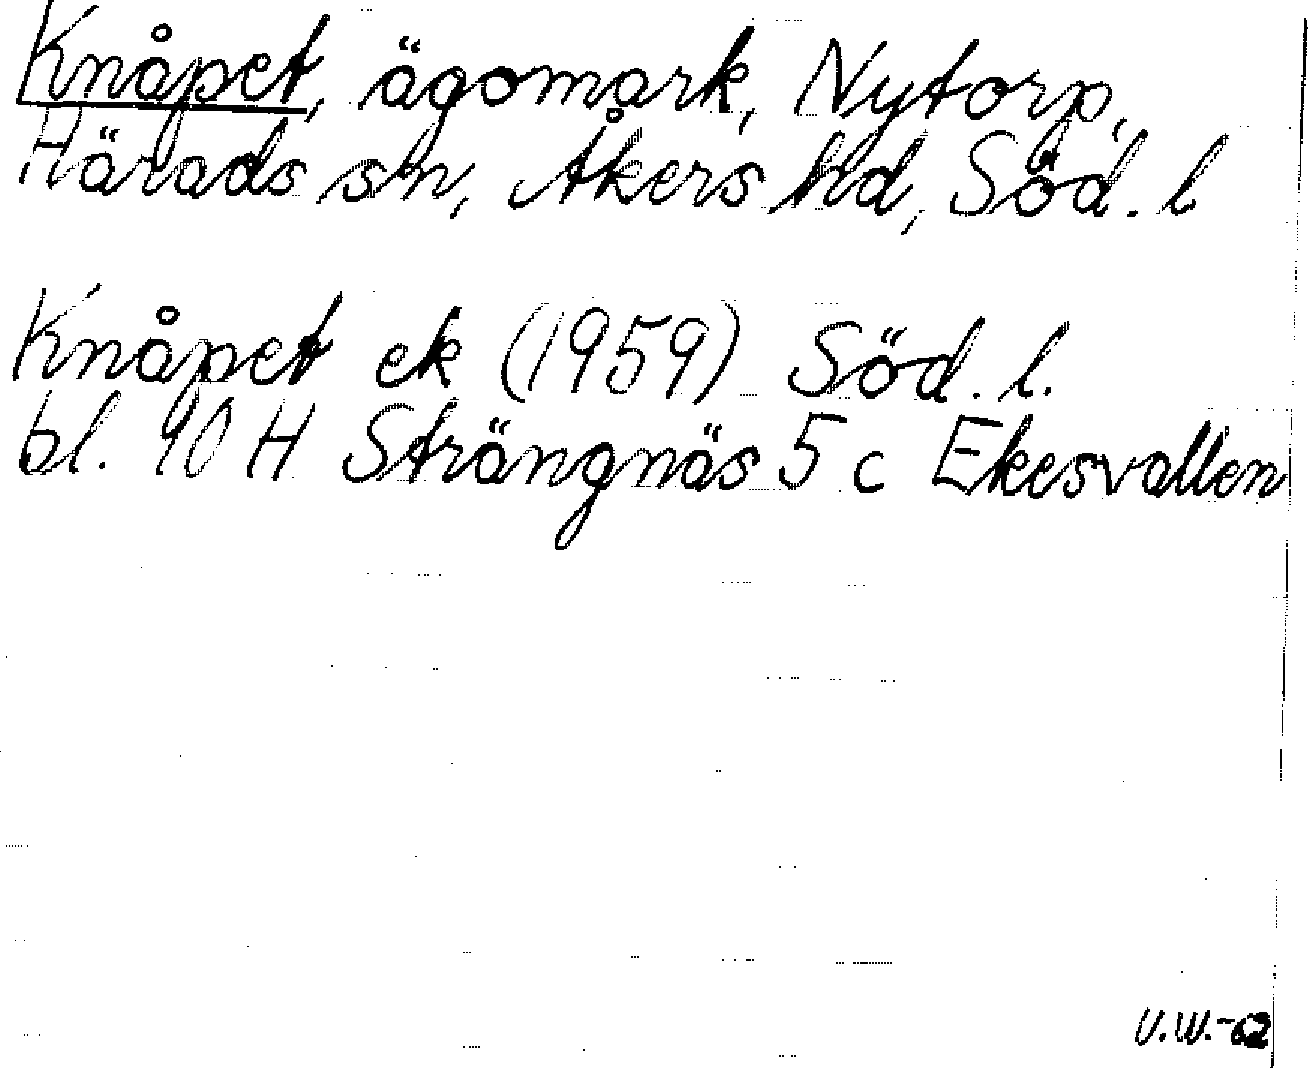 Knåpet, ägomark, Nytorp,
Härads sn, Åkers hd, Söd. l
Knåpet ek (1959) Söd. l.
bl. 10 H Strängnäs 5 c Ekesvallen
V.W.-62